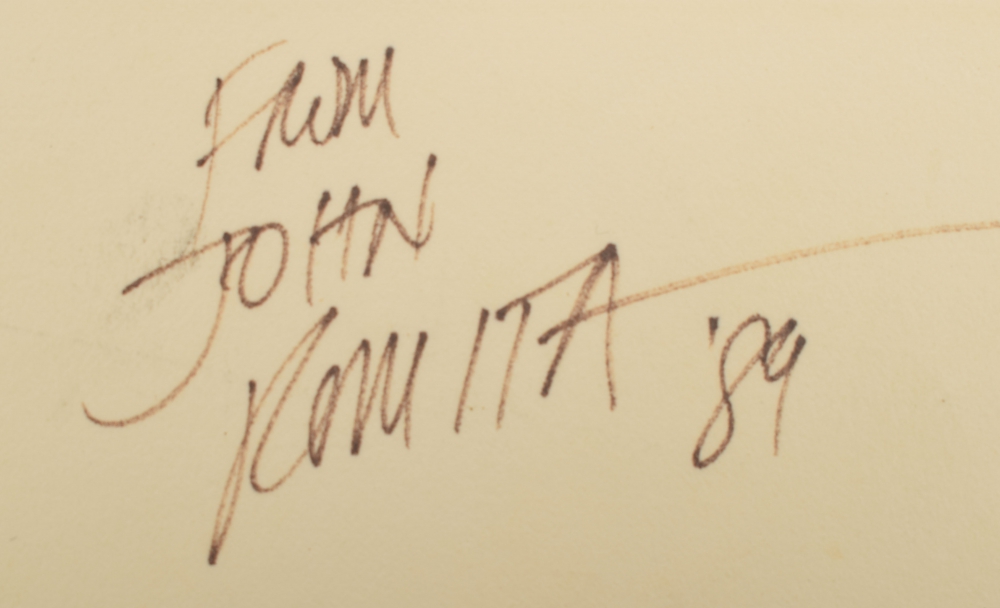 FROM
JOHN
ROMITA '89